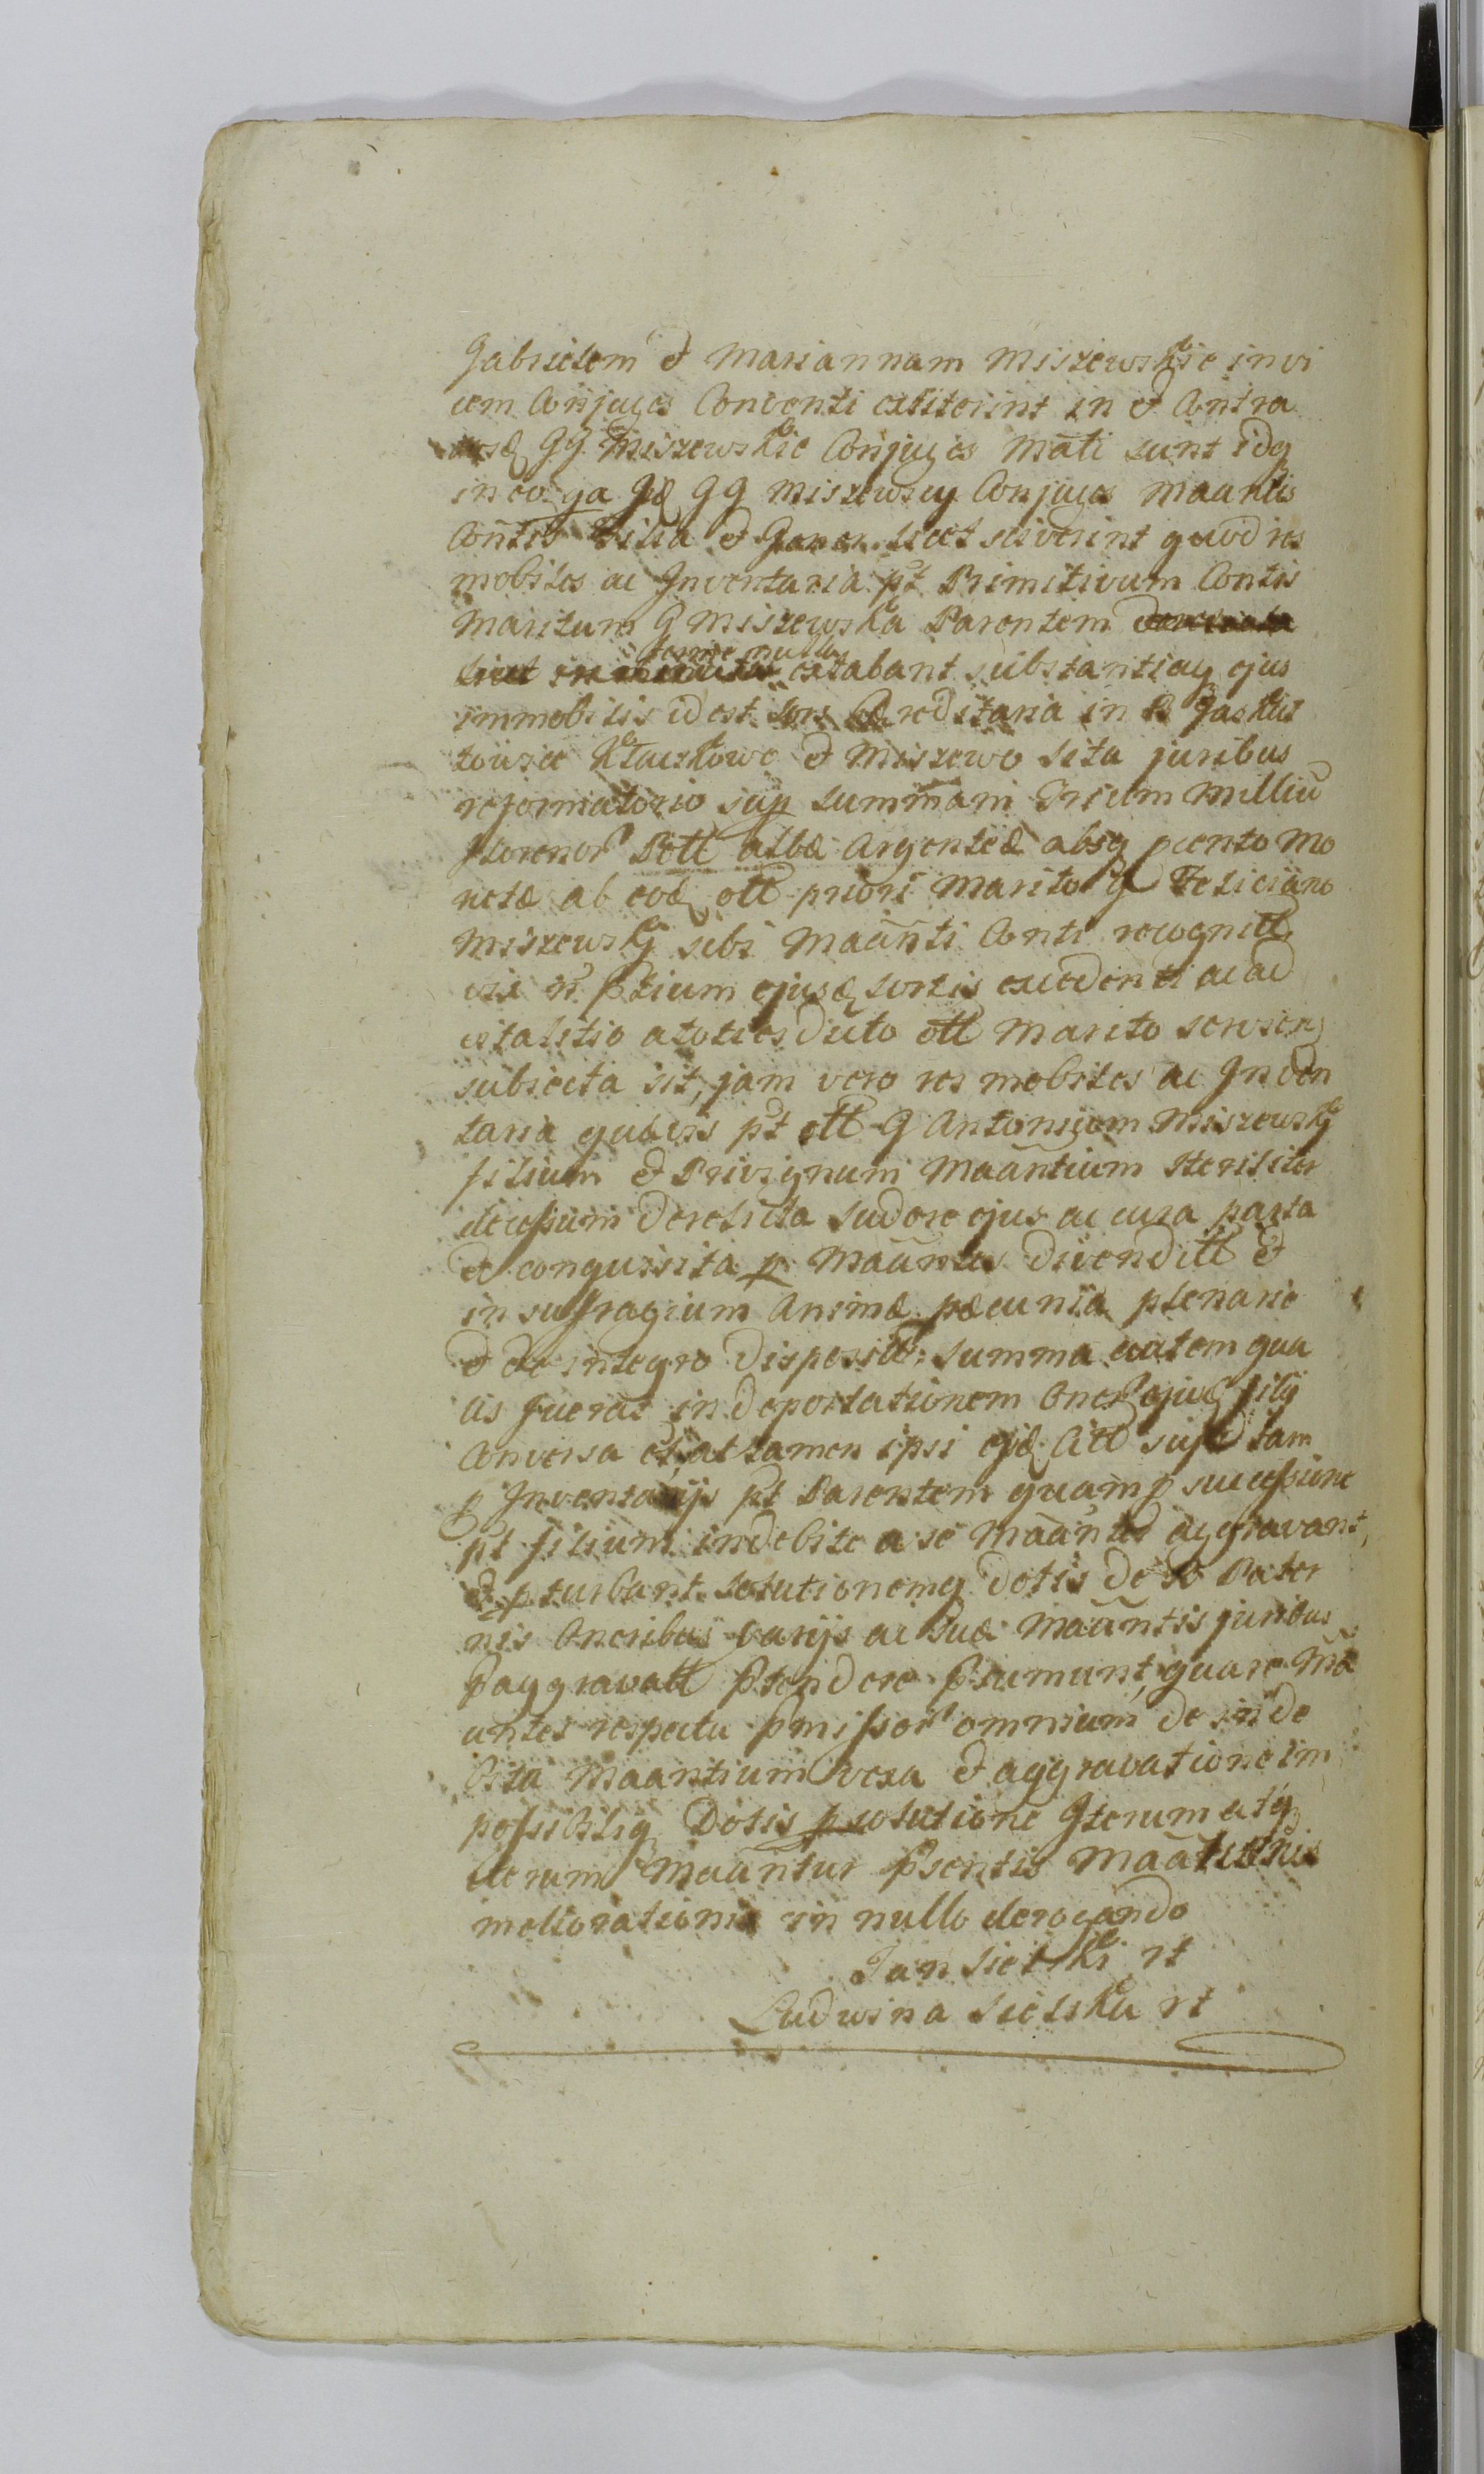 Gabrielem et Mariannam Miszewskie invi
cem Conjuges Conventi extiterint in et Contra
GG Miszewskie Conjuges Mãti sunt idq
in eo ga GG Miszewscy Conjuges Maantis
Contis Filia et Gener licet sciverint quod res
mobiles ac Inventaria pt Primitivum Contis
Maritum G Miszewska Parentem
ferme nulla
extabant substantiaq ejus
immobilis id est sors hæreditaria in B
Kłaczkowo et Miszewo sita juribus
reformatorio sup summam Trium Milliũ
florenor Poll albæ Argenteæ absq pcento mo
netæ ab eod oll priori Marito G Feliciano
Miszewski sibi Maãnti Conti recognitt
ptium ejusd sortis excedenti ac ad
vitalitio atotiesdicto oll Marito servien
subiecta sit, jam vero res mobiles ac Inven
taria quævis pt oll G Antonium Miszewski
filium et Privignum Maãntium steriliter
decessum derelicta sudore ejus ac cura parta
et conquisita p Maãntes divenditt et
in suffragium Animæ pæcunia plenarie
et de integro disposita: summa autem qua
lis fuerat in deportationem Oner ejusd filij
Conversa est, attamen ipsi ejd Citt suph tam
p Inventarijs pt Parentem quam p successione
pt filium indebite a se Maãntes aggravant,
et pturbant solutionemq dotis de B Pater
nis Oneribus varijs ac suæ Maãntis juribus
paggravatt ptendere psumunt, quare Mã
antes respectu pmissor omnium de inde
bita Maantium vexa et aggravatione im
possibiliq Dotis psolutione Iterum atq
iterum Maãntur psentis Maãtionis
melioratione in nullo derogando
Jan Sielski rt
Ludwina Sielska rt